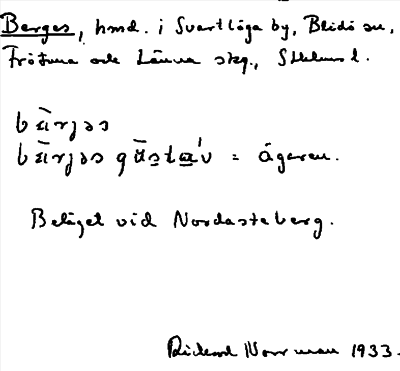 Berges, hmd. i Svartlöga by, Blidö sn,
Frötuna och Länna skg., Sthlms l.
bärjəs
bärjəs gùsta'v = ägaren.
Beläget vid Nordasteberg.
Rickard Norrman 1933.